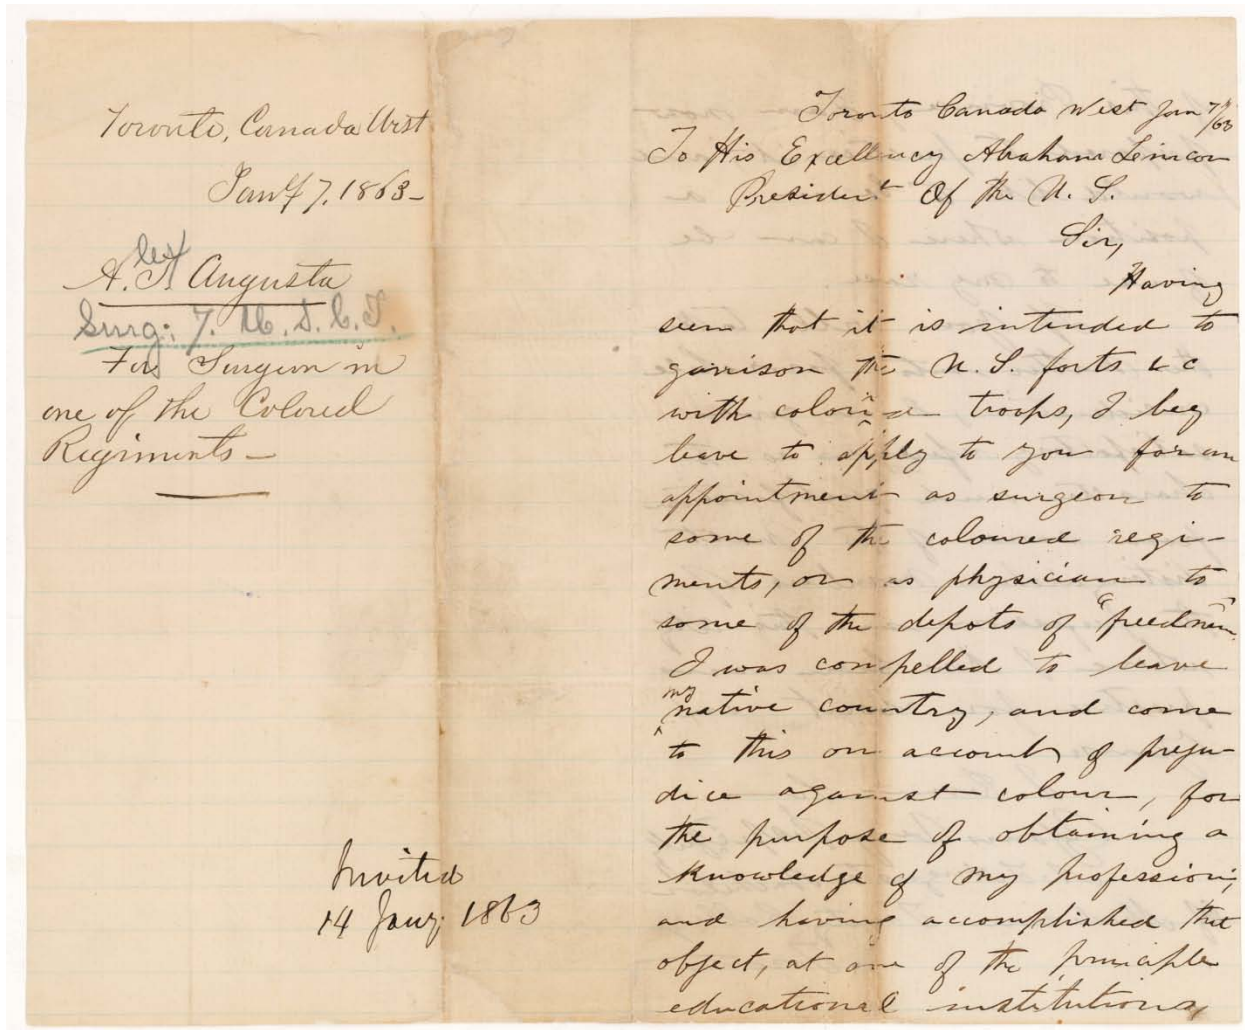 Toronto, Canada West
Jany 7, 1863-
A. T. Augusta
lex
Surg: 7. U. S. C. T.
For Surgeon in
one of the Colored
Regiments-
Invited
14 Jany. 1863
Toronto Canada West Jan 7/63
To His Excellency Abraham Linncon
President Of the U. S.
Sir,
Having
seen that it is intended to
garrison the U. S. forts &c
with colored troops, I beg
leave to apply to you for an
appointment as surgeon to
some of the coloured regi-
ments, or as physician to
some of the depots of "freedmen".
I was compelled to leave
my native country, and come
to this on account of preju-
dice against colour, for
the purpose of obtaining a
knowledge of my profession;
and having accomplished that
object, at one of the principle
educational institutions